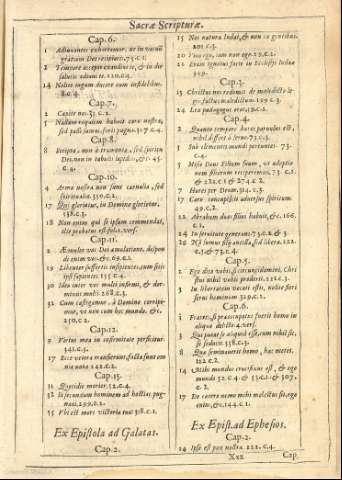 Sacræ Scripturæ.
Cap. 6.
1 Adiuuantes exhortamur, ne in vacuū
gratiam Dei recipiatis. 75. c. 1.
2 Tempore accepto exaudiui te, & in die
salutis adiuui te. 120. c. 4.
14 Nolite iugum ducere cum infidelibus.
8. c. 4.
Cap. 7.
2 Capite nos. 31. c. 2.
5 Nullam requiem habuit caro nostra,
sed foris pugnæ. 317. c. 4.
Cap. 8.
Cap. 10.
4 Arma nostra non sunt carnalia, sed
spiritualia. 350. c. 1.
17 Qui gloriatur, in Domino glorietur.
138. c. 3.
18 Non enim qui se ipsum commendat,
ille probatus est
Cap. 11.
2 Æmulor vos Dei æmulatione, despon
di enim vos &c. 69. c. 1.
19 Libenter suffertis insipientes, cum sitis
ipsi sapientes. 155. c. 4.
30 Ideo inter vos multi infirmi, & dor
miunt multi 268. c. 3.
32 Cum castigamur, à Domino corripi-
mur, vt non cum hoc mundo, &c.
250. c. 2.
Cap. 12.
9 Virtus mea in infirmitate perficitur.
342. c. 3.
17 Ecce vetera transierunt, facta sunt om
nia noua 142. c. 2.
Cap. 15.
31 Quotidie morior. 52. c. 4.
32 Si secundum hominem ad bestias pug-
naui. 299. c. 2.
55 Vbi est mors victoria tua 318. c. 1.
Ex Epistola ad Galatas.
Cap. 2.
15 Nos natura Iudæi, & non ex gentibus.
201 c. 3.
20 Viuo ego, iam non ego. 29. c. 2.
Cap. 3.
13 Christus nos redemit de maledicto le-
gis: factus maledictum. 159 c. 3.
24 Lex pædagogus
Cap. 4.
1 Quanto tempore hæres paruulus est,
nihil differt à seruo. 73. c. 3.
3 Sub elementis mundi seruientes. 73.
c. 4.
5 Misit Deus Filium suum, vt adoptio
nem filiorum reciperemus. 73. c. 1.
& 222. c. 1 & 274. c. 2.
7 Hæres per Deum. 314. c. 3.
17 Caro concupiscit aduersus spiritum.
49. c. 2.
22 Abraham duos filios habuit, &c. 166.
c. 1.
24 In seruitute generans. 73. c. 2. & 3
sed libera. 222.
c. 1 & 73. c. 4.
Cap. 5.
2 Ego dico vobis, si circumcidamini, Chri
stus nihil vobis proderit. 222. c. 3.
13 In libertatem vocati estis, nolite fieri
serui hominum 329. c. 1.
Cap. 6.
1 Fratres, si præoccupatus fuerit homo in
aliquo delicto
3 Qui putat se aliquid esse, cum nihil sit,
se seducit. 358. c. 3.
8 Quæ seminauerit homo, hæc metet.
122. c. 2.
14 Mihi mundus crucifixus est, & ego
mundo 52. c. 4. & 53. c. 1. & 307.
c. 2.
17 De cætero nemo mihi molestus sit, ego
enim, &c. 144. c. 1.
Ex Epist. ad Ephesios.
Cap. 2.
14 Ipse est pax nostra 222. c. 4.
Xxx Cap.